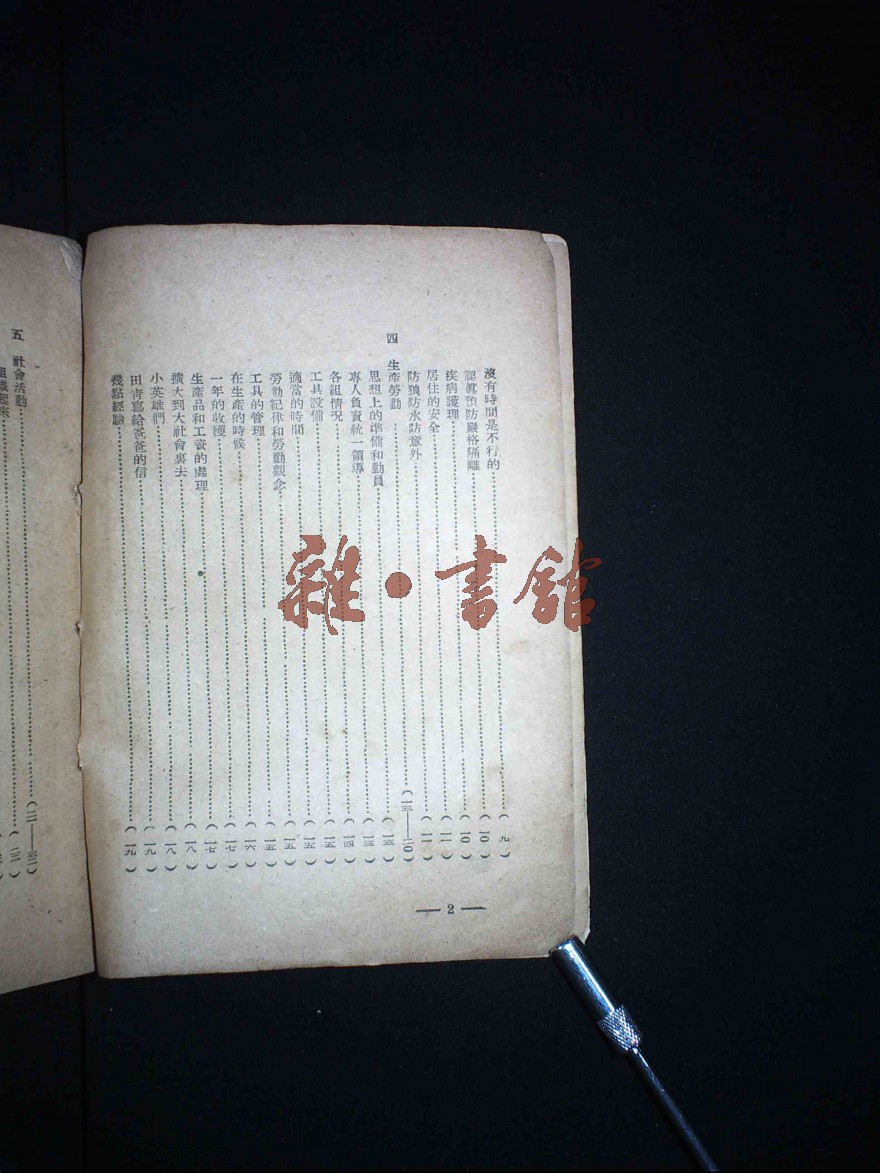 沒有時間是不行的………(九)
認眞預防嚴格隔離………(一〇)
疾病護理………(一〇)
居住的安全………(一一)
防狼防水防意外………(一一)
四 生產勞動………(一三——二〇)
思想上的準備和動員………(一三)
專人負責統一領導………(一三)
各組情况………(一四)
工具設備………(一五)
適當的時間………(一五)
勞動紀律和勞動觀念………(一五)
工具的管理………(一五)
在生產的時候………(一六)
一年的收穫………(一七)
生產品和工資的處理………(一七)
擴大到大社會裏去………(一八)
小英雄們………(一八)
田靑寫給爸爸的信………(一九)
幾點經驗………(一九)
— 2 —
五 社會活動………
組織起來………
雜·書館